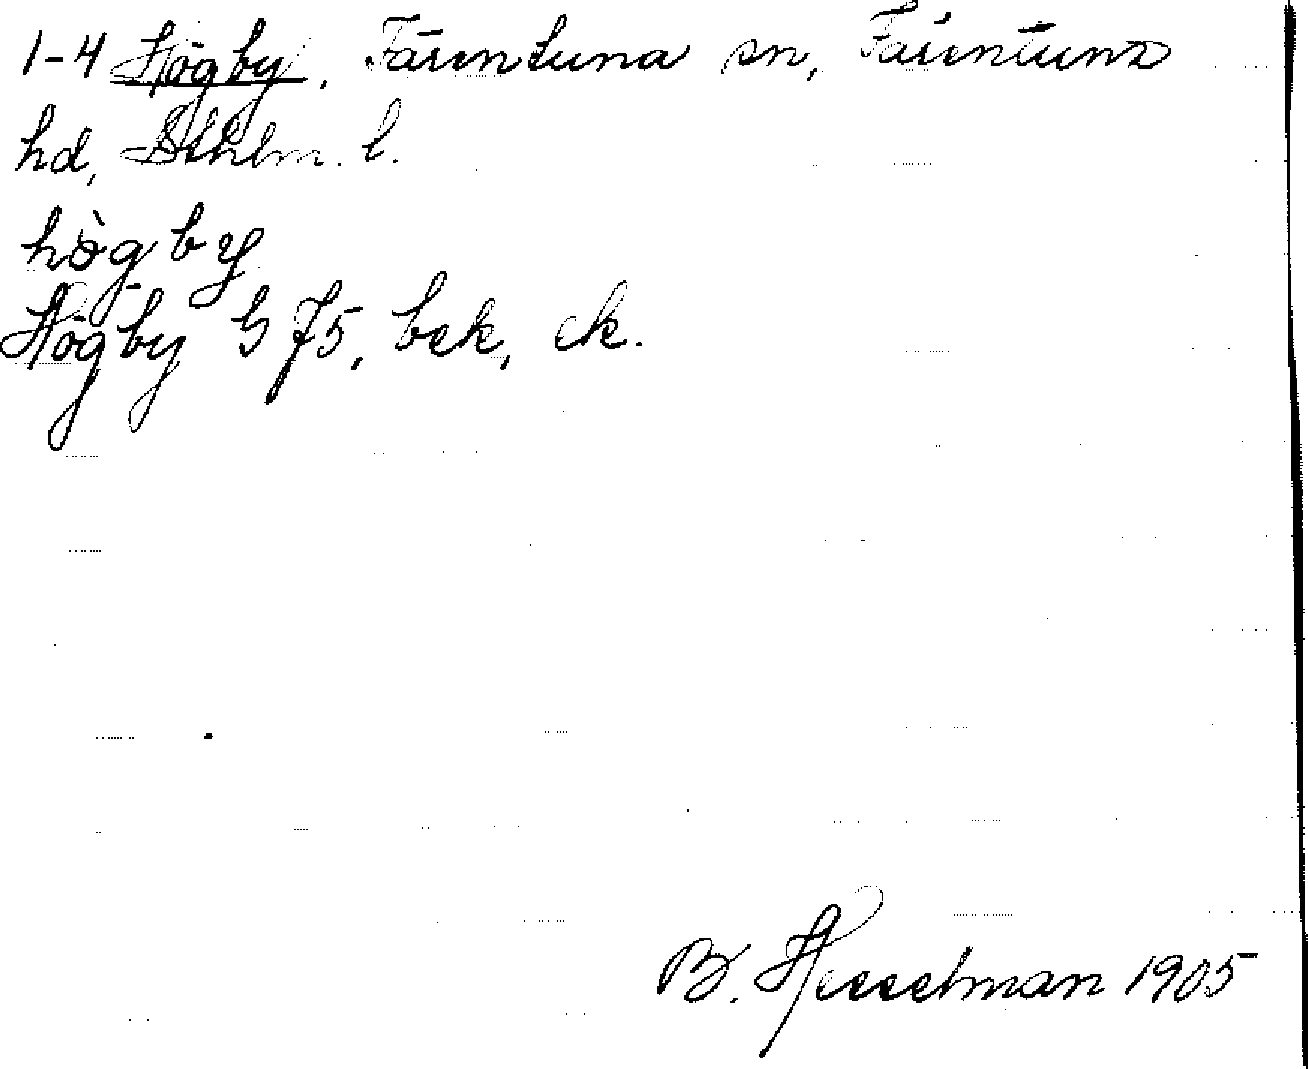 1-4 Högby, Färentuna sn, Färentuna
hd, Sthlm. l.
hògby
Högby G J5, bek, ek.
B. Hesselman 1905